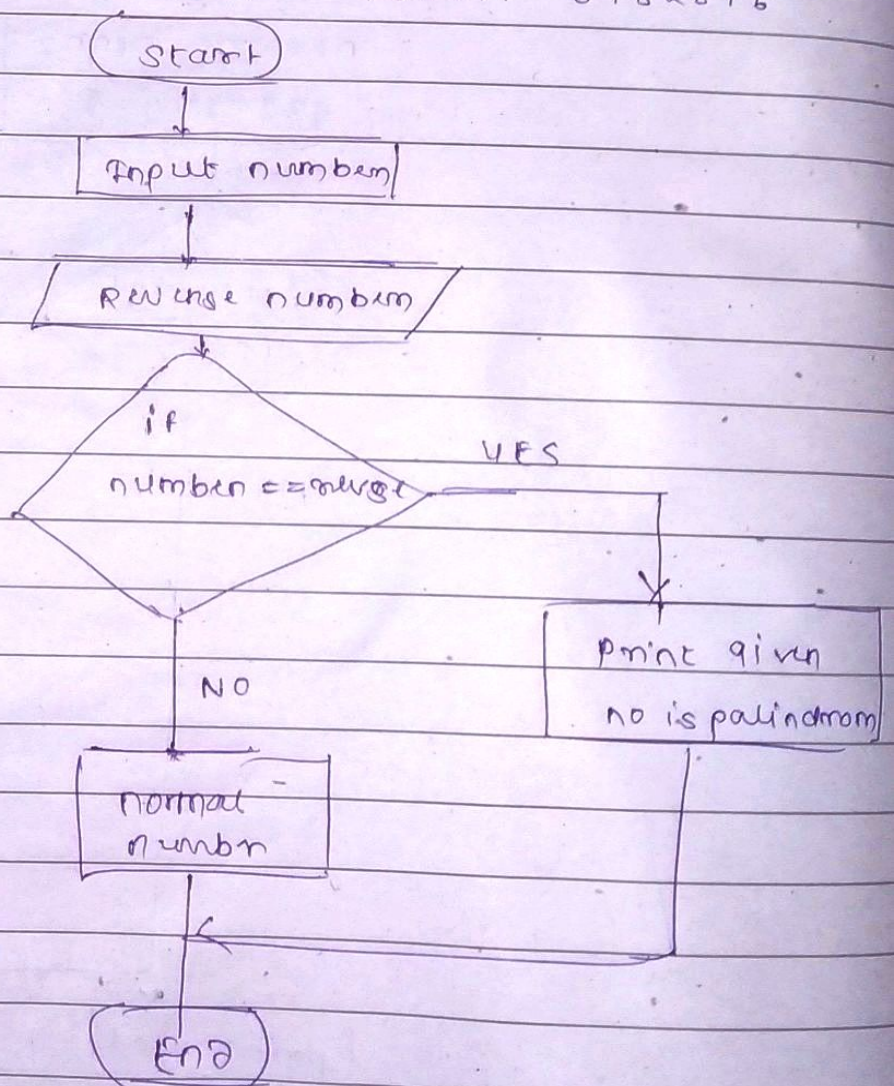 Start
Input number
Reverse number
if
YES
number == reverse
Print given
no is palindrom
NO
normal
numbr
End